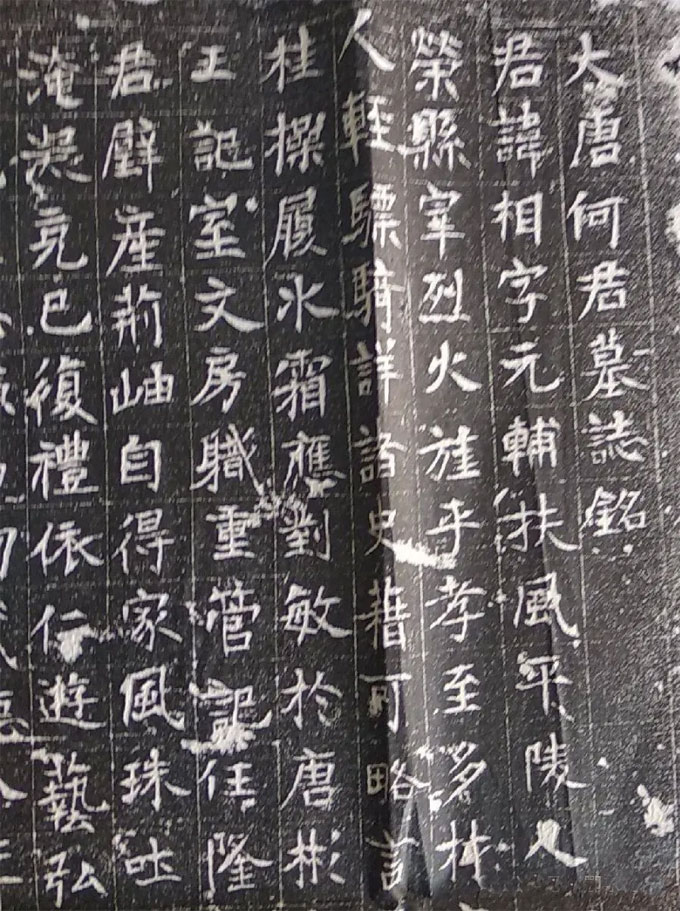 大唐何君墓誌銘
君諱相字元輔扶風平陵人
榮縣宰烈火旌乎孝至多材
人輕驃騎詳諸史藉可略言
桂操履氷霜應對敏於唐彬
王記室文房職重管記任隆
君璧産荊岫自得家風珠吐
淹克己復禮依仁遊藝弘